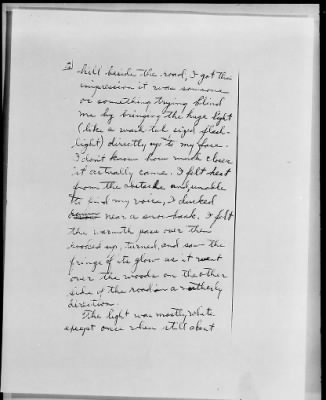 2)
hill beside the road, I got the
impression it was someone
or something trying blind
me by bringing the huge light
(like a wash tub sized flash-
light) directly up to my face.
I don't know how much closer
it actually came. I felt heat
from the outside and unable
to find my voice, I ducked
near a snow bank. I felt
the warmth pass over then
looked up, turned, and saw the
fringe of its glow as it went
over the woods on the other
side of the road in a northerly
direction.
The light was mostly white
except once when still about